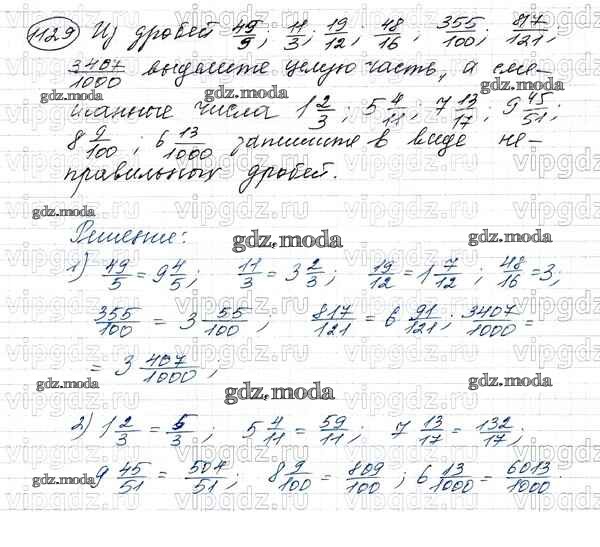 1129) Из дробей 49/9; 11/3; 19/12; 48/16; 355/100; 817/121;
3407/1000 выделите целую часть, а сме-
шанные числа 1 2/3; 5 4/11; 7 13/17; 9 45/51;
8 9/100; 6 13/1000 запишите в виде не-
правильных дробей.
Решение:
1) 49/5 = 9 4/5; 11/3 = 3 2/3; 19/12 = 1 7/12; 48/16 = 3;
355/100 = 3 55/100; 817/121 = 6 91/121; 3407/1000 =
= 3 407/1000;
2) 1 2/3 = 5/3; 5 4/11 = 59/11; 7 13/17 = 132/17;
9 45/51 = 504/51; 8 9/100 = 809/100; 6 13/1000 = 6013/1000.
gdz.moda
vipgdz.ru